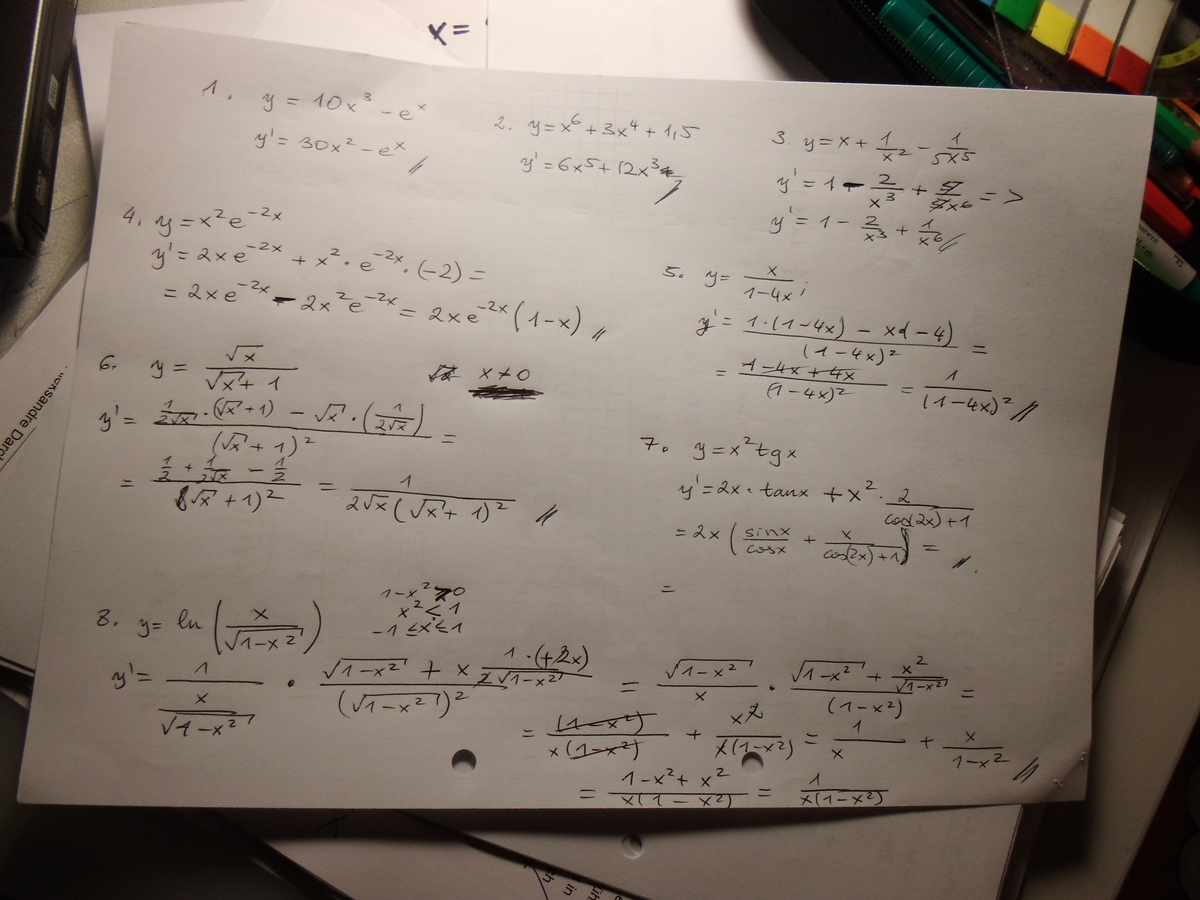 x =
1. y = 10x³ - eˣ
y' = 30x² - eˣ //
2. y = x⁶ + 3x⁴ + 1,5
y' = 6x⁵ + 12x³ //
3. y = x + 1/x² - 1/5x⁵
y' = 1 - 2/x³ + 5/5x⁶ =>
y' = 1 - 2/x³ + 1/x⁶ //
4. y = x²e⁻²ˣ
y' = 2xe⁻²ˣ + x² · e⁻²ˣ · (-2) =
= 2xe⁻²ˣ - 2x²e⁻²ˣ = 2xe⁻²ˣ(1-x) //
5. y = x/(1-4x) ;
y' = (1·(1-4x) - x(-4))/(1-4x)² =
= (1-4x+4x)/(1-4x)² = 1/(1-4x)² //
6. y = √x/(√x + 1) x ≠ 0
y' = (1/(2√x) · (√x + 1) - √x · (1/(2√x)))/(√x + 1)² =
= (1/2 + 1/(2√x) - 1/2)/(√x + 1)² = 1/(2√x(√x + 1)²) //
7. y = x²tgx
y' = 2x · tanx + x² · 2/(cos(2x)+1)
= 2x (sinx/cosx + x/(cos(2x)+1)) = //.
=
8. y = ln (x/√(1-x²))
1-x² ≥ 0
x² ≤ 1
-1 ≤ x ≤ 1
y' = 1/(x/√(1-x²)) · (√(1-x²) + x 1·(+2x)/(2√(1-x²)))/(√(1-x²))² = √(1-x²)/x · (√(1-x²) + x²/√(1-x²))/(1-x²) =
= (1-x²)/(x(1-x²)) + x²/(x(1-x²)) = 1/x + x/(1-x²) //
= (1-x²+x²)/(x(1-x²)) = 1/(x(1-x²))